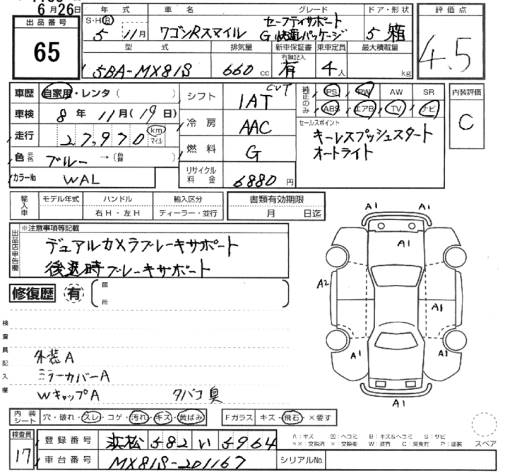 6月26日
出品番号
65
S・H・R 年 式 車 名 グレード ドア・形状
5 11月 ワゴンRスマイル セーフティサポート 5 箱
G 快適パッケージ
型 式 排気量 新車保証書 乗車定員 最大積載量
有無記入
5BA-MX81S 660 cc 有 4人 kg
評価点
4.5
車歴 自家用・レンタ( )
車検 8年11月(19日)
走行 27,970 km マイル
色 元色 ブルー →(替)
カラーNo WAL
シフト 1AT CVT
冷房 AAC
燃料 G
リサイクル料金 6880円
純正のみ PS PW AW SR
ABS エアB TV ナビ
セールスポイント
キーレスプッシュスタート
オートライト
内装評価
C
輸入車 モデル年式 ハンドル 輸入区分 書類有効期限
年 右H・左H ディーラー・並行 月 日迄
出品店申告欄
※注意事項等記載
デュアルカメラブレーキサポート
後退時ブレーキサポート
修復歴 有 箇所
検査員記入欄
外装A
ミラーカバーA
WキャップA タバコ臭
A1 A1
A1
A2 A1
A1
A1
内装シート 穴・破れ・スレ・コゲ・汚れ・キズ・黄ばみ Fガラス キズ・飛石・×要す
スペア
検査員
17
登録番号 浜松 582 い 5964
車台番号 MX81S-201167 シリアルNo